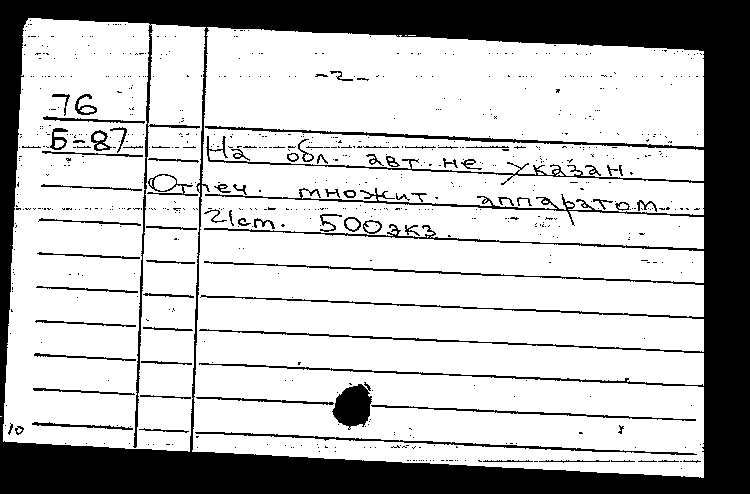 -2-
76
Б-87
На обл. авт. не указан.
Отпеч. множит. аппаратом
500 экз.
10